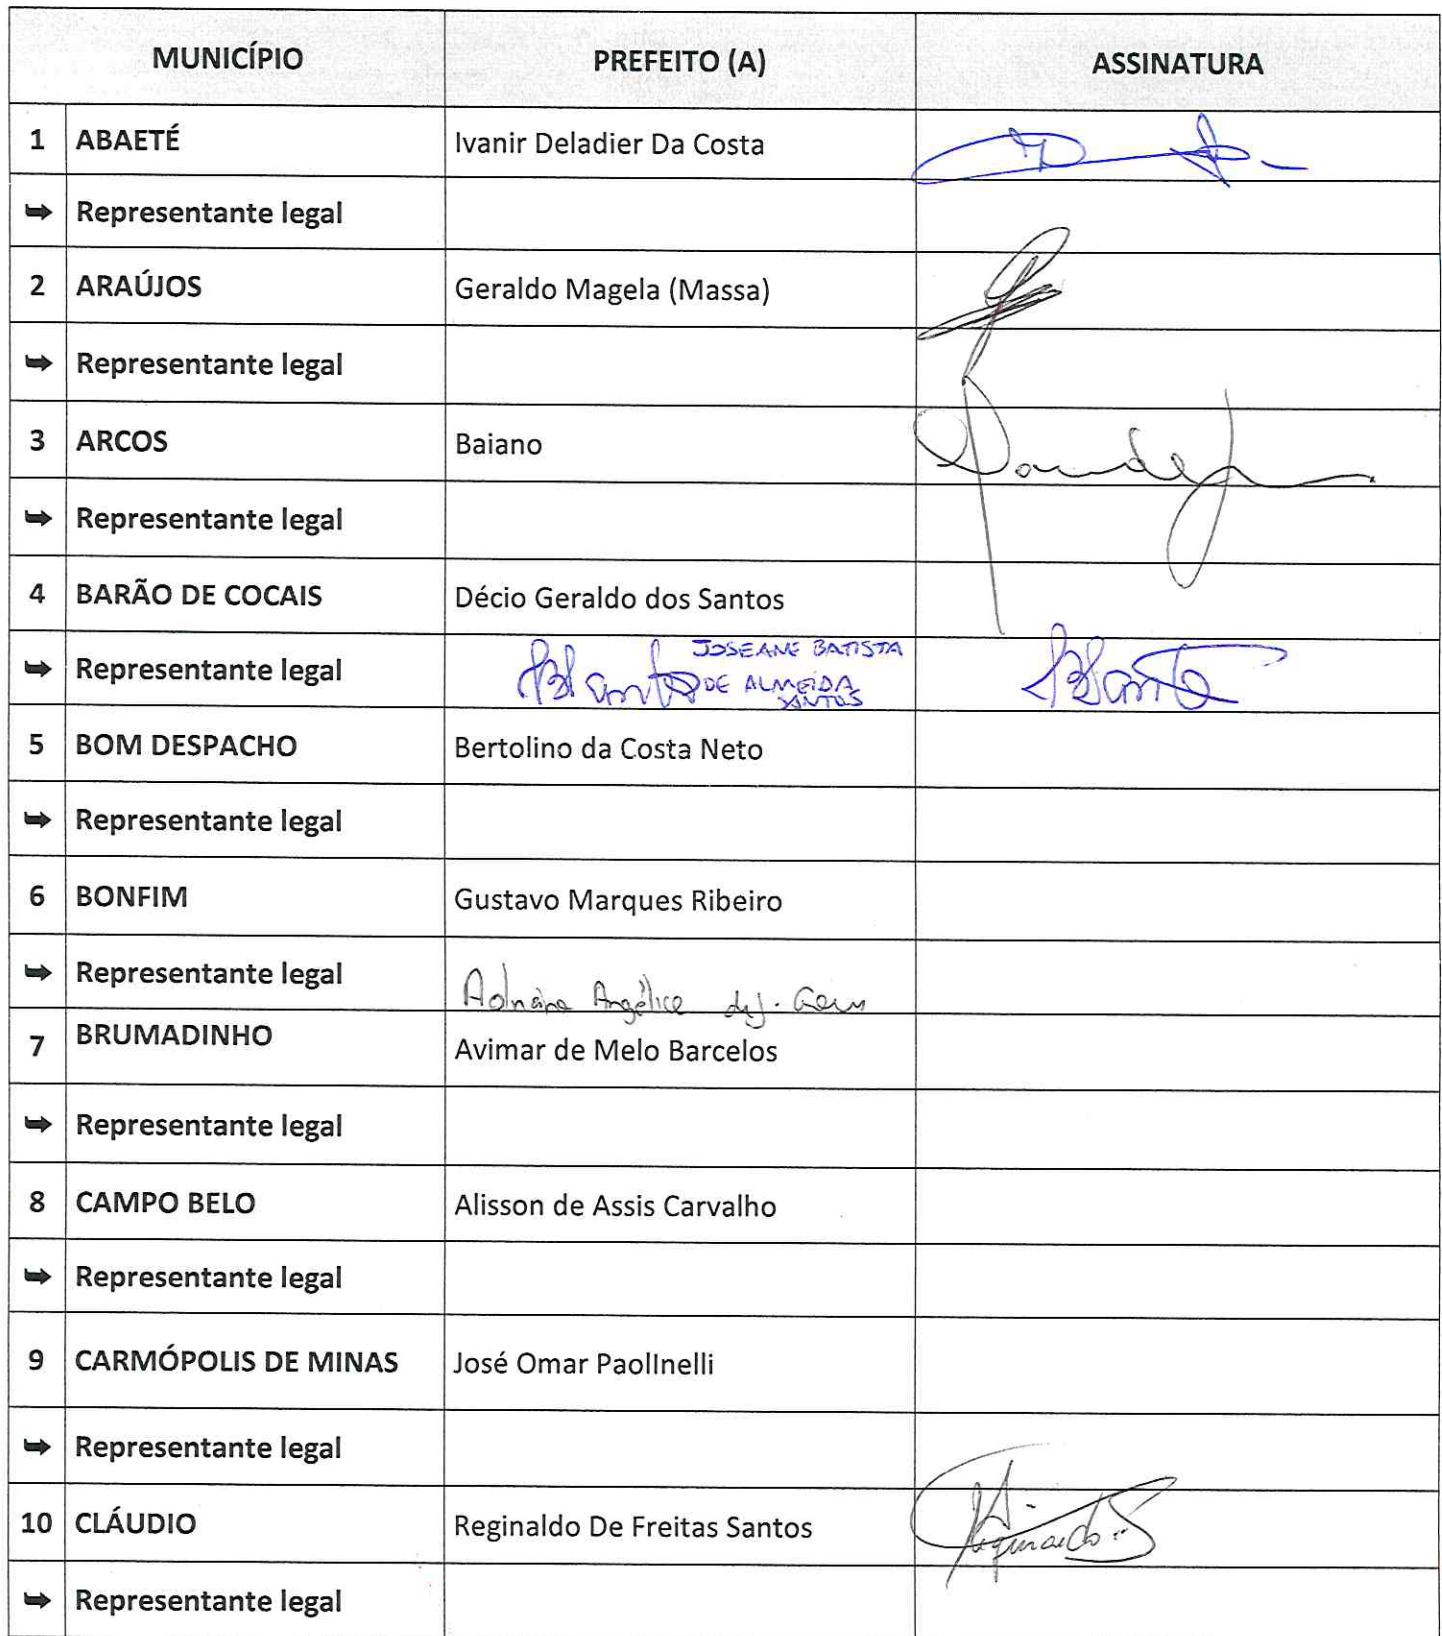 MUNICÍPIO PREFEITO (A) ASSINATURA
1 ABAETÉ Ivanir Deladier Da Costa
➥ Representante legal
2 ARAÚJOS Geraldo Magela (Massa)
➥ Representante legal
3 ARCOS Baiano
➥ Representante legal
4 BARÃO DE COCAIS Décio Geraldo dos Santos
➥ Representante legal JOSEANE BATISTA
DE ALMEIDA
SANTOS
5 BOM DESPACHO Bertolino da Costa Neto
➥ Representante legal
6 BONFIM Gustavo Marques Ribeiro
➥ Representante legal Angélica
7 BRUMADINHO Avimar de Melo Barcelos
➥ Representante legal
8 CAMPO BELO Alisson de Assis Carvalho
➥ Representante legal
9 CARMÓPOLIS DE MINAS José Omar PaolInelli
➥ Representante legal
10 CLÁUDIO Reginaldo De Freitas Santos
➥ Representante legal